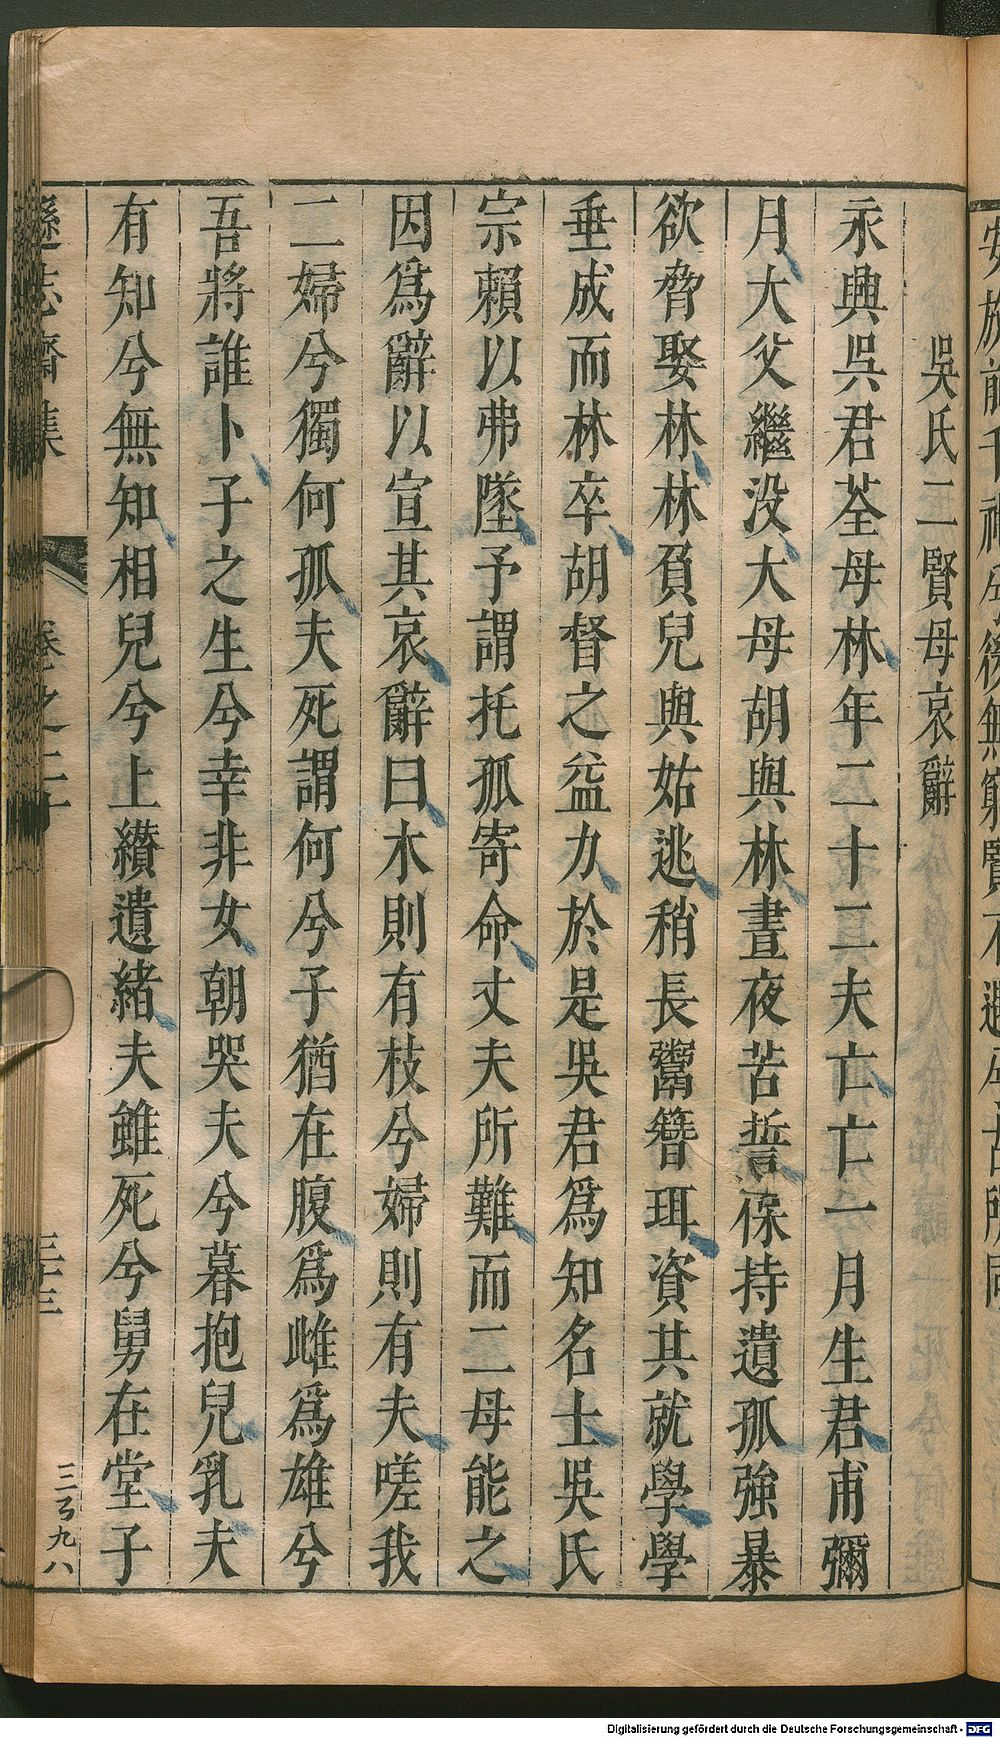 吳氏二賢母哀辭
永興吳君荃母林年二十二夫亡亡一月生君甫彌
月大父繼没大母胡與林晝夜苦誓保持遺孤強暴
欲脅娶林林負兒與姑逃稍長鬻簪珥資其就學學
垂成而林卒胡督之益力於是吳君爲知名士吳氏
宗賴以弗墜予謂托孤寄命丈夫所難而二母能之
因爲辭以宣其哀辭曰木則有枝兮婦則有夫嗟我
二婦兮獨何孤夫死謂何兮子猶在腹爲雌爲雄兮
吾將誰卜子之生兮幸非女朝哭夫兮暮抱兒乳夫
有知兮無知相兒兮上纘遺緒夫雖死兮舅在堂子
遜志齋集
卷之二十
三十三
三百九八
Digitalisierung gefördert durch die Deutsche Forschungsgemeinschaft - DFG